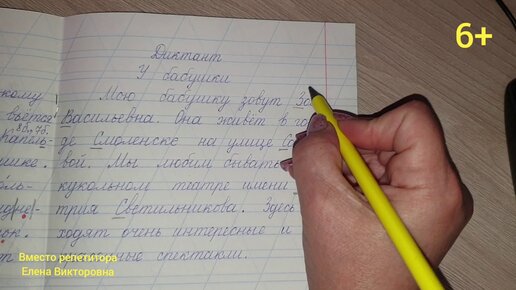 6+
Диктант
У бабушки
Мою бабушку зовут
Васильевна. Она живёт в
де Смоленске на улице
вой. Мы любим бывать
кукольном театре имени
трия Светильникова. Здесь
ходят очень интересные и
спектакли.
Вместо репетитора
Елена Викторовна